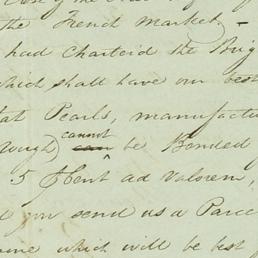 the French Market -
had Charterd the Brig
which shall have our best
Pearls, manufactu
Weigh) cannot be Bonded
5 ⅌Cent ad Valorem,
you send us a Parce
which will be best